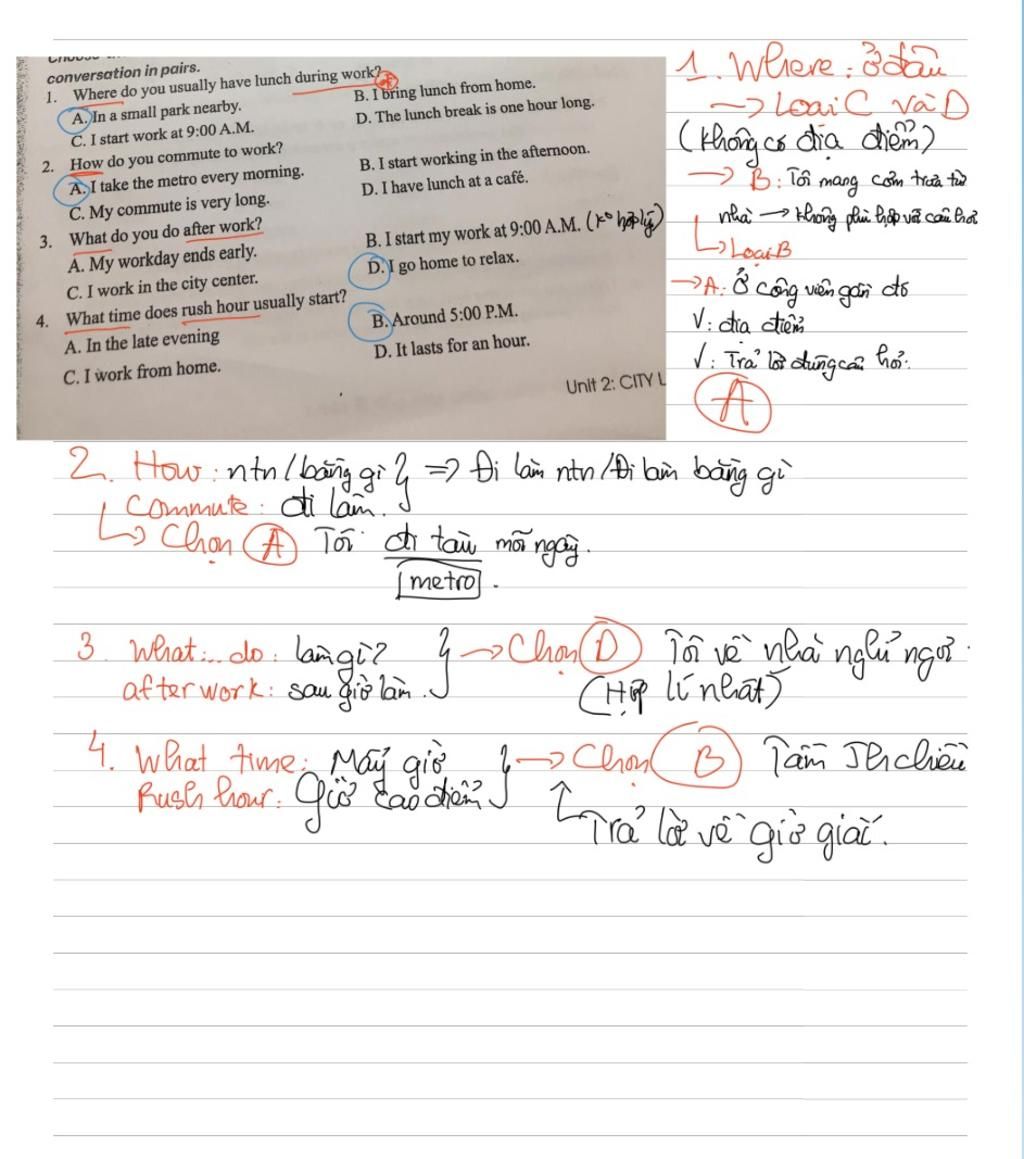 conversation in pairs.
1. Where do you usually have lunch during work?
A. In a small park nearby.
B. I bring lunch from home.
C. I start work at 9:00 A.M.
D. The lunch break is one hour long.
2. How do you commute to work?
A. I take the metro every morning.
B. I start working in the afternoon.
C. My commute is very long.
D. I have lunch at a café.
3. What do you do after work?
A. My workday ends early.
B. I start my work at 9:00 A.M. (K° hợp lý)
C. I work in the city center.
D. I go home to relax.
4. What time does rush hour usually start?
A. In the late evening
B. Around 5:00 P.M.
C. I work from home.
D. It lasts for an hour.
Unit 2: CITY L
1. Where: ở đâu
→ Loại C và D
(không có địa điểm)
→ B: Tôi mang cơm trưa từ
nhà → không phù hợp với câu hỏi
↳ Loại B
→ A: Ở công viên gần đó
V: địa điểm
V: Trả lời đúng câu hỏi.
A
2. How: ntn / bằng gì } ⇒ Đi làm ntn / Đi làm bằng gì
Commute: đi làm.
↳ Chọn A Tôi đi tàu mỗi ngày.
metro.
3. What... do: làm gì? } → Chọn D Tôi về nhà nghỉ ngơi.
after work: sau giờ làm. (Hợp lí nhất)
4. What time: Mấy giờ } → Chọn B Tầm 5h chiều
Rush hour: Giờ cao điểm
↑ Trả lời về giờ giấc.